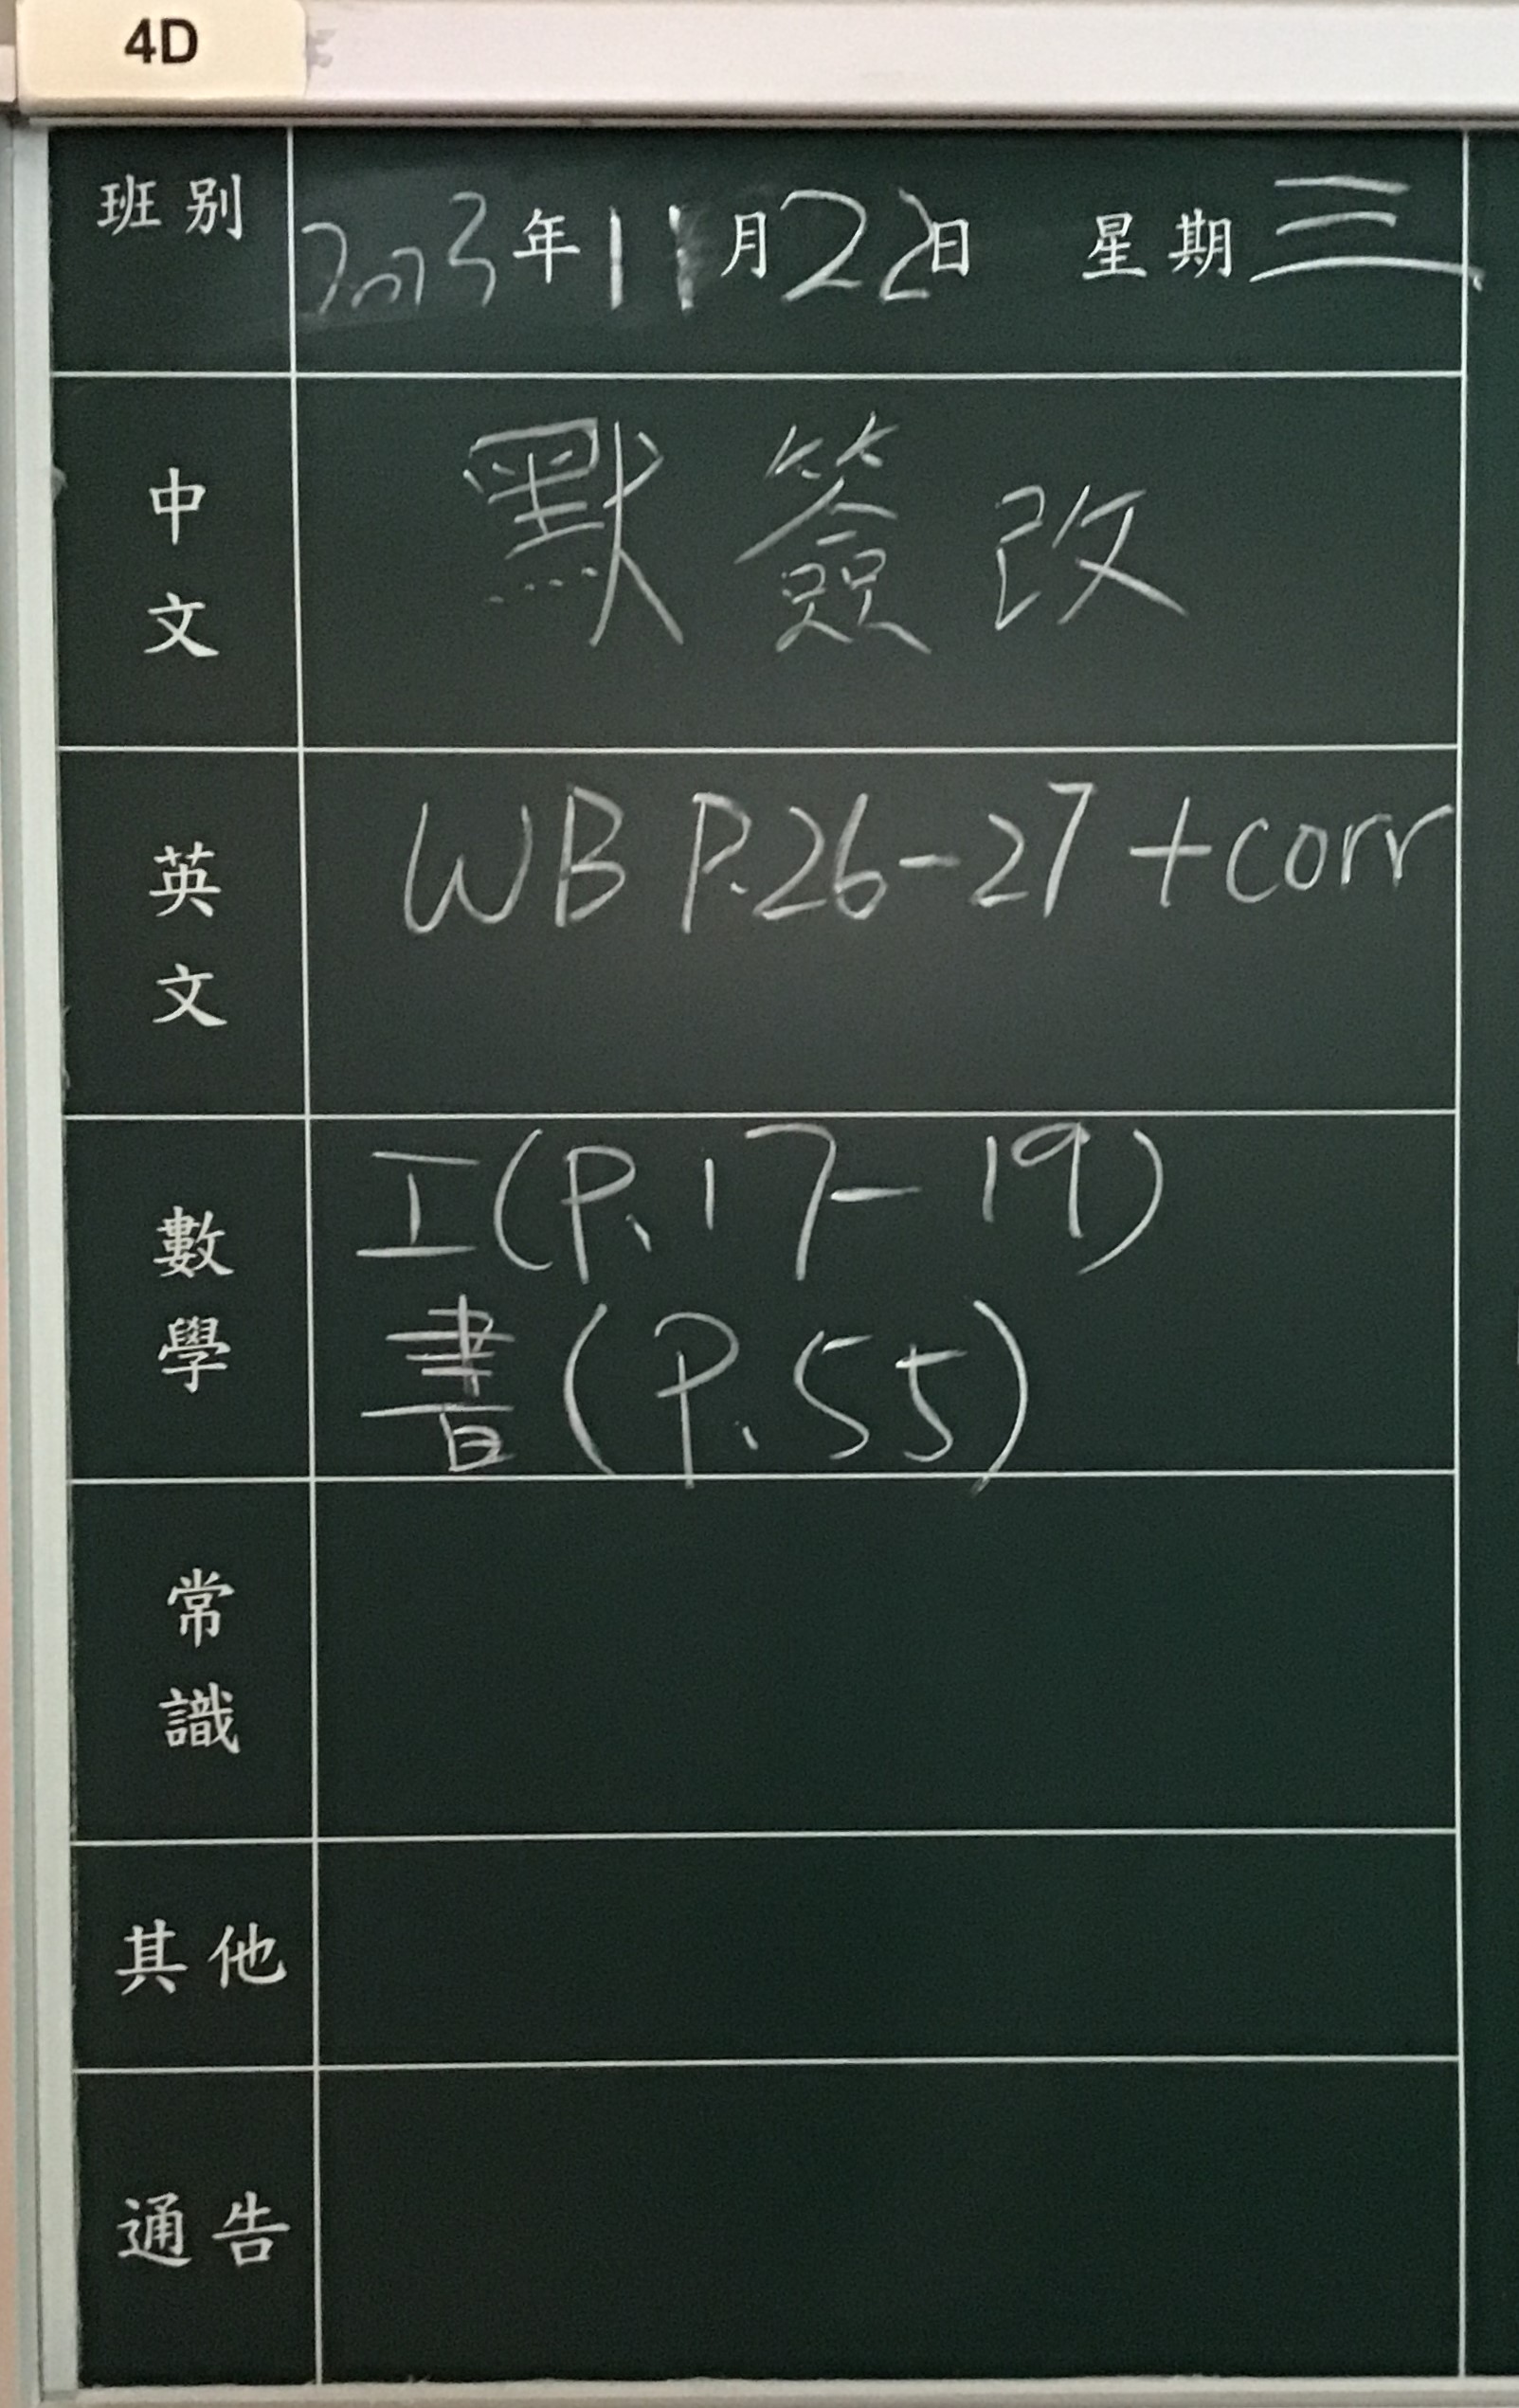 4D
班別 2023年11月22日 星期三
中文 默簽改
英文 WB P.26-27 +corr
數學 工(P.17-19)
書(P.55)
常識
其他
通告